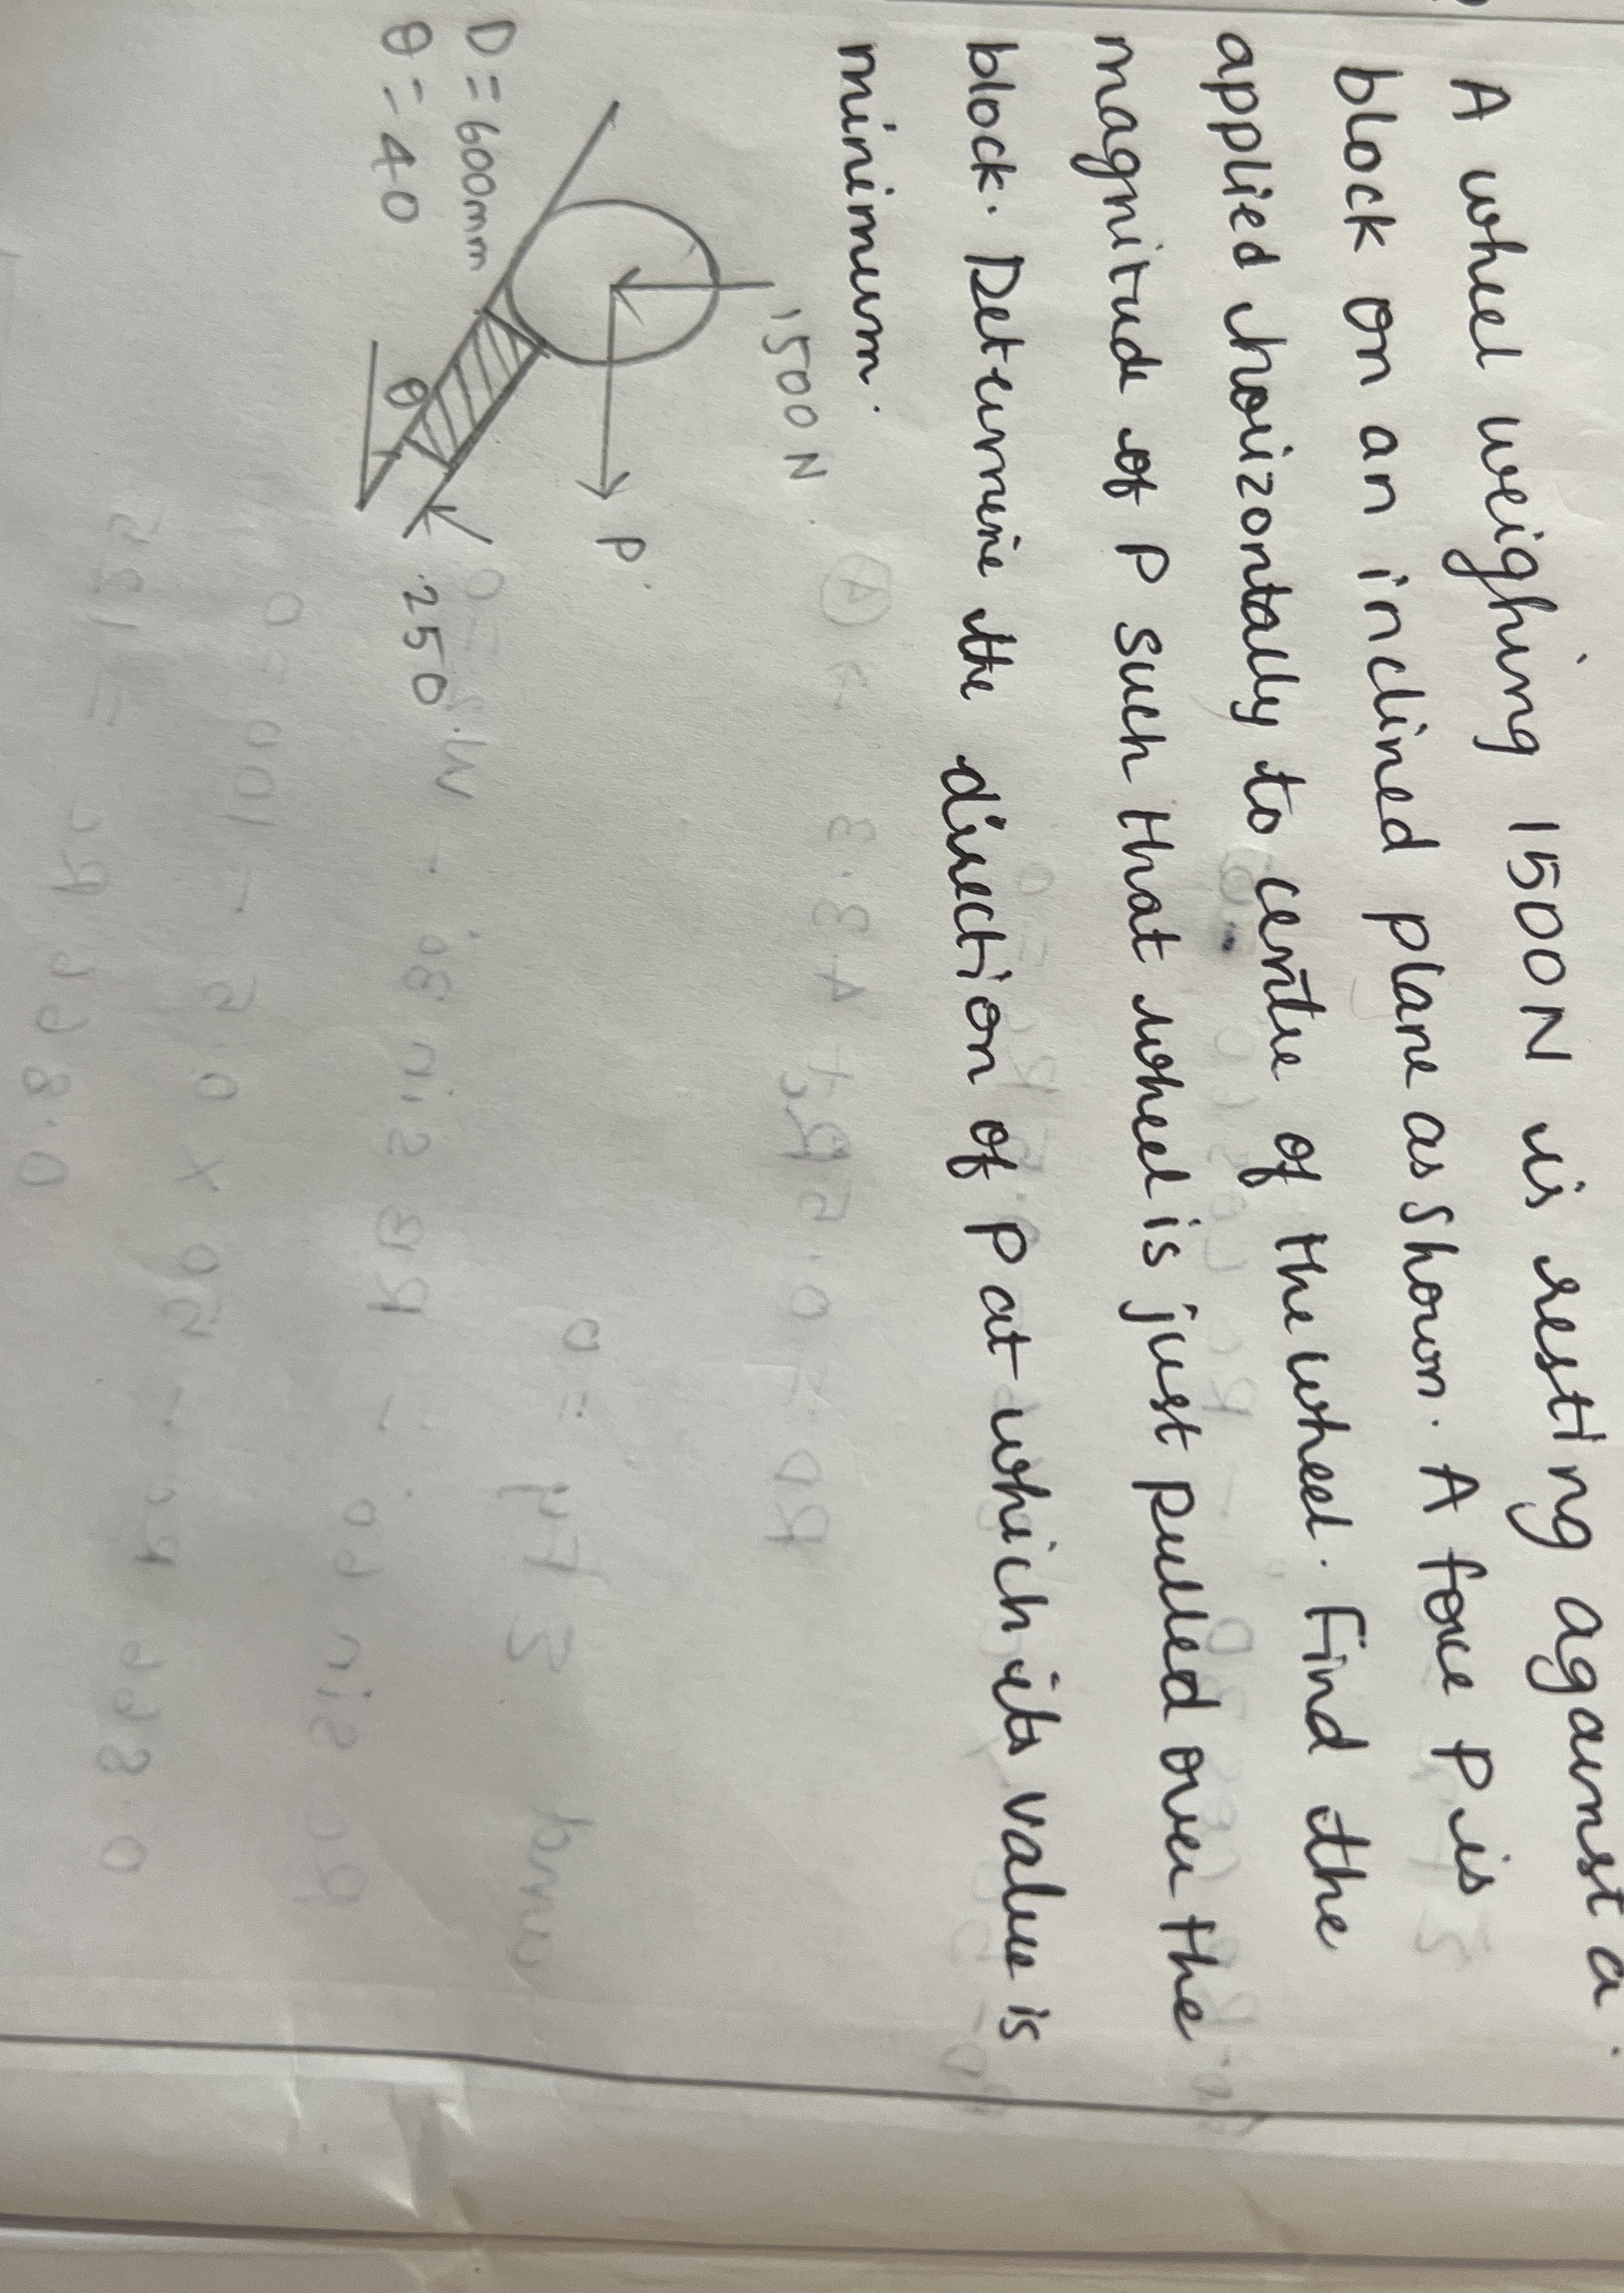 A wheel weighing 1500N is resting against a
block on an inclined plane as shown. A force P is
applied horizontally to centre of the wheel. Find the
magnitude of P such that wheel is just pulled over the
block. Determine the direction of P at which its value is
minimum.
1500 N
P
D = 600mm
θ = 40
θ
250